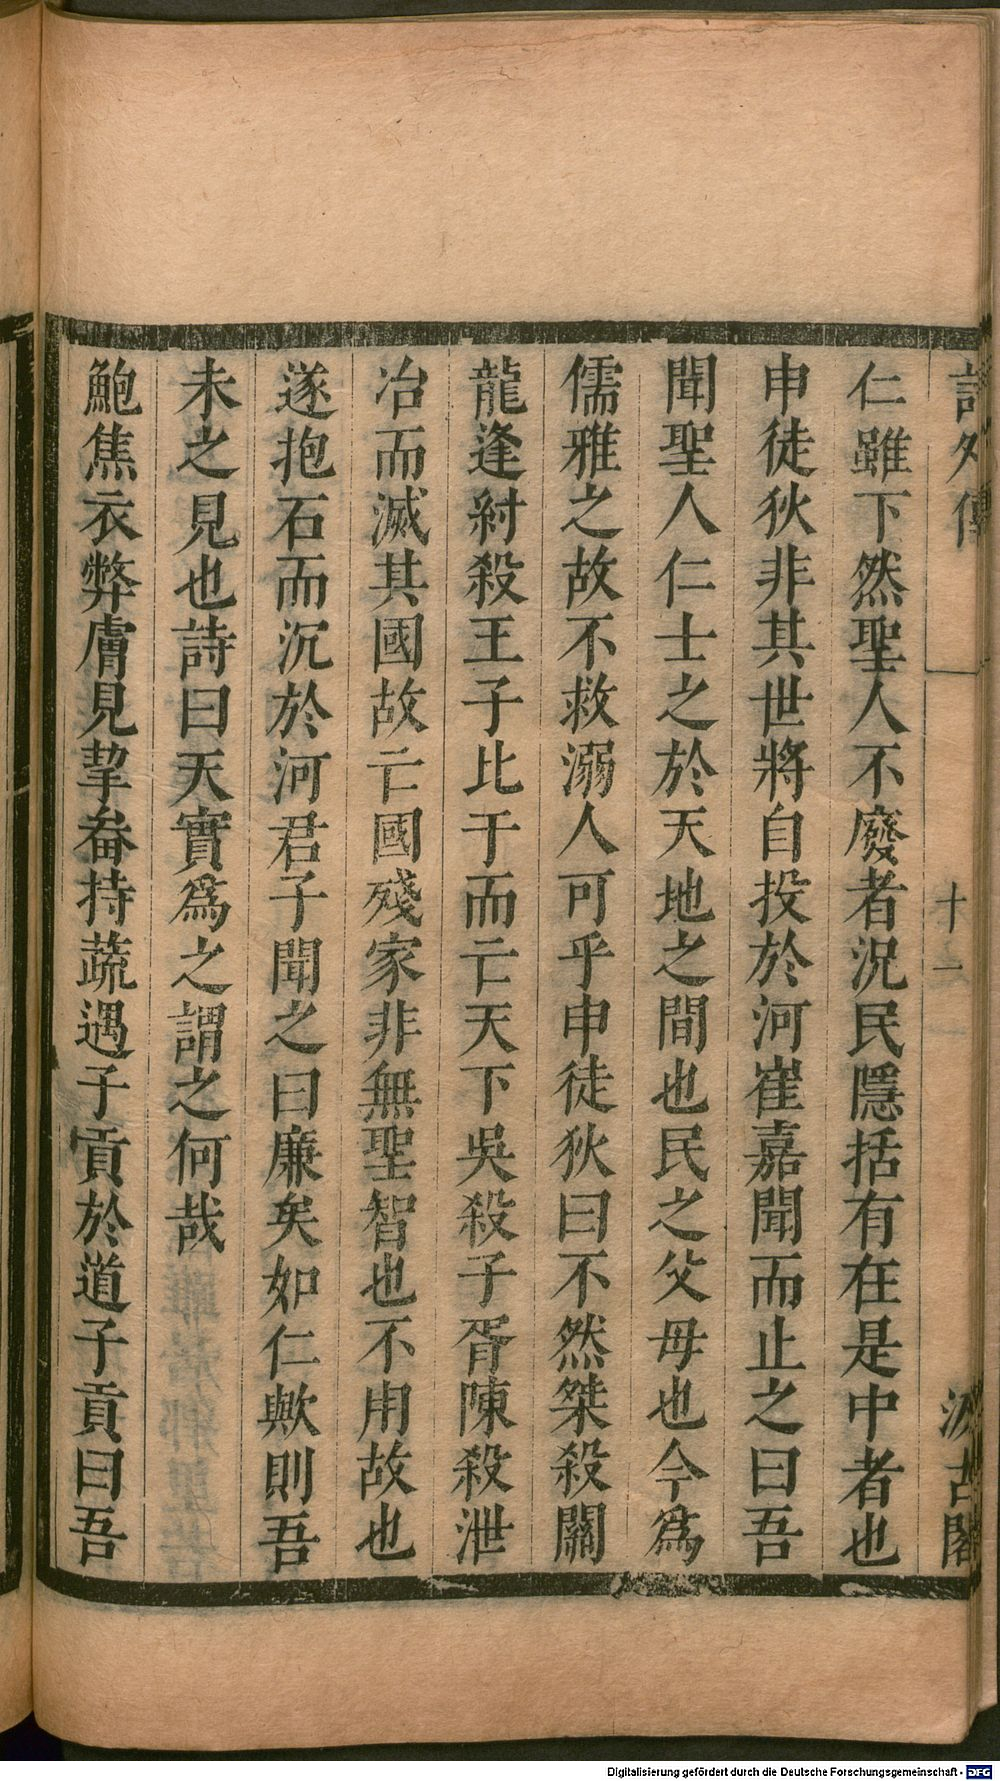 詩外傳 十一 汲古閣
仁雖下然聖人不廢者況民隱括有在是中者也
申徒狄非其世將自投於河崔嘉聞而止之曰吾
聞聖人仁士之於天地之間也民之父母也今爲
儒雅之故不救溺人可乎申徒狄曰不然桀殺關
龍逢紂殺王子比干而亡天下吳殺子胥陳殺泄
冶而滅其國故亡國殘家非無聖智也不用故也
遂抱石而沉於河君子聞之曰廉矣如仁歟則吾
未之見也詩曰天實爲之謂之何哉
鮑焦衣弊膚見挈畚持蔬遇子貢於道子貢曰吾
Digitalisierung gefördert durch die Deutsche Forschungsgemeinschaft - DFG